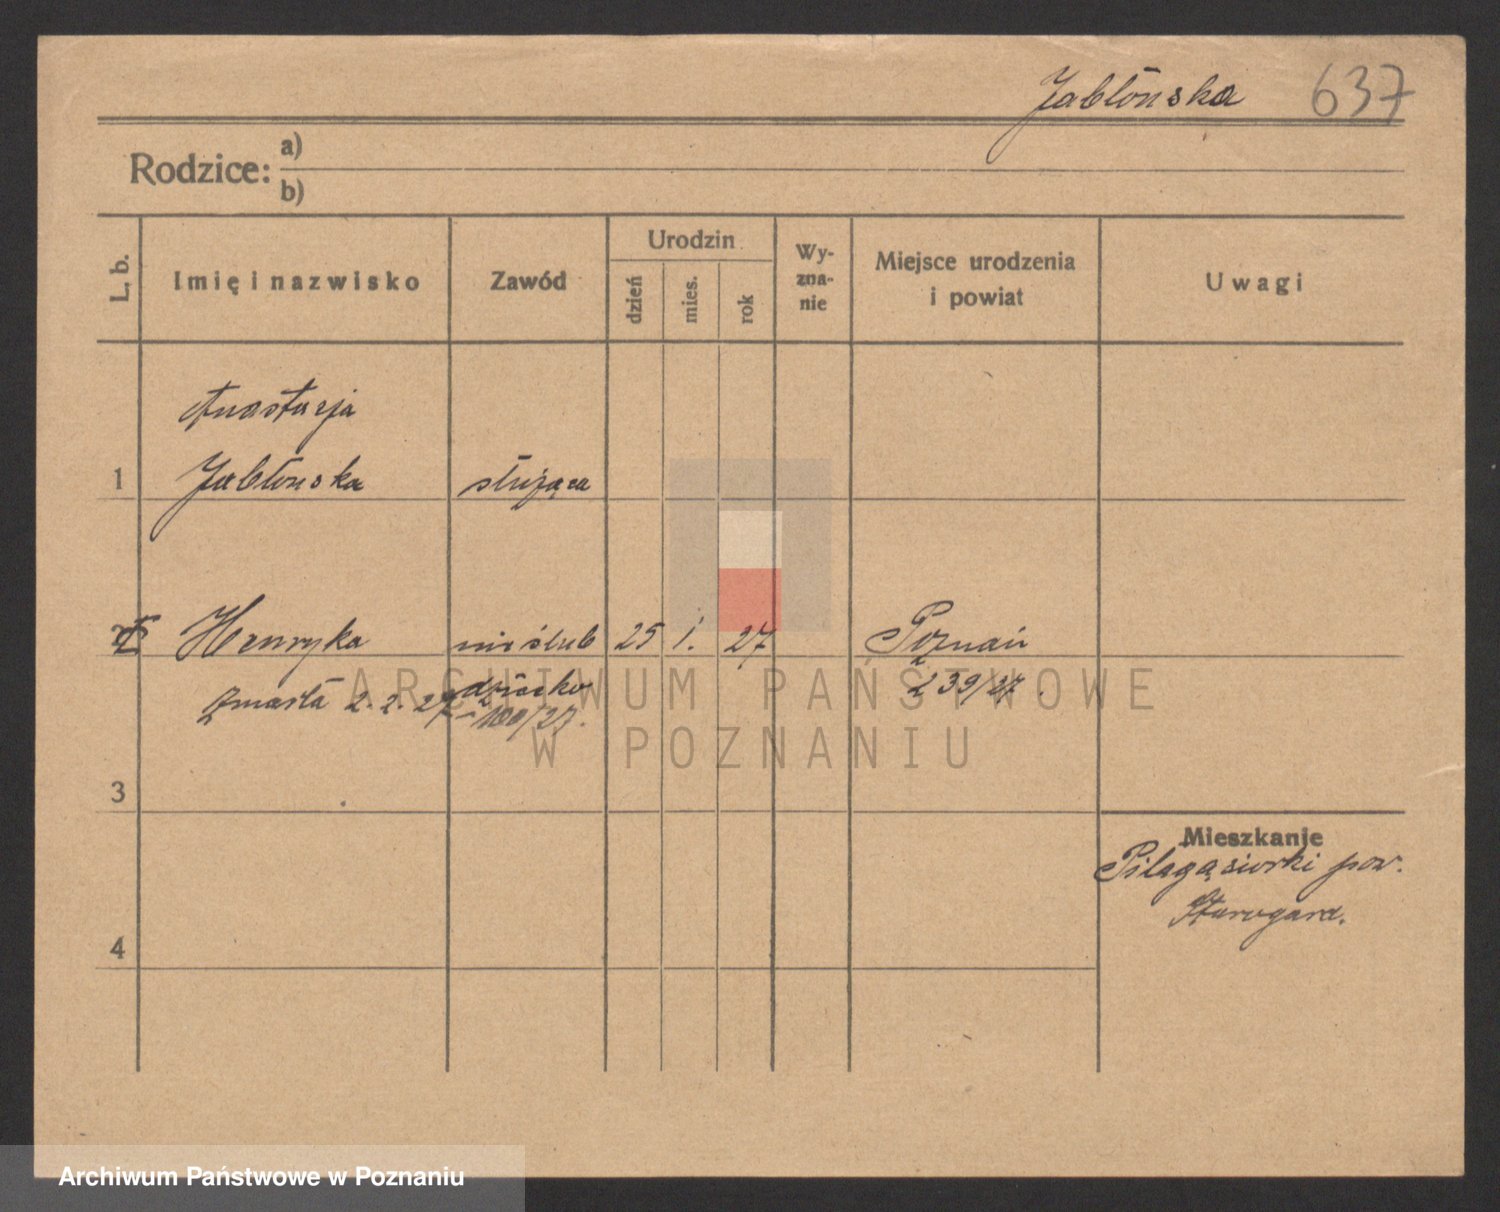 Jabłońska 637
Rodzice: a)
b)
L. b.
Imię i nazwisko
Zawód
Urodzin
dzień
mies.
rok
Wy-
zna-
nie
Miejsce urodzenia
i powiat
Uwagi
Anastazja
1 Jabłońska służąca
2 Henryka nieślub 25 i. 27 Poznań
zmarła 2. 2. 27 dziecko 239/27.
100/27.
3
Mieszkanie
Pilagąsiorki pow.
Starogard.
4
ARCHIWUM PAŃSTWOWE
W POZNANIU
Archiwum Państwowe w Poznaniu